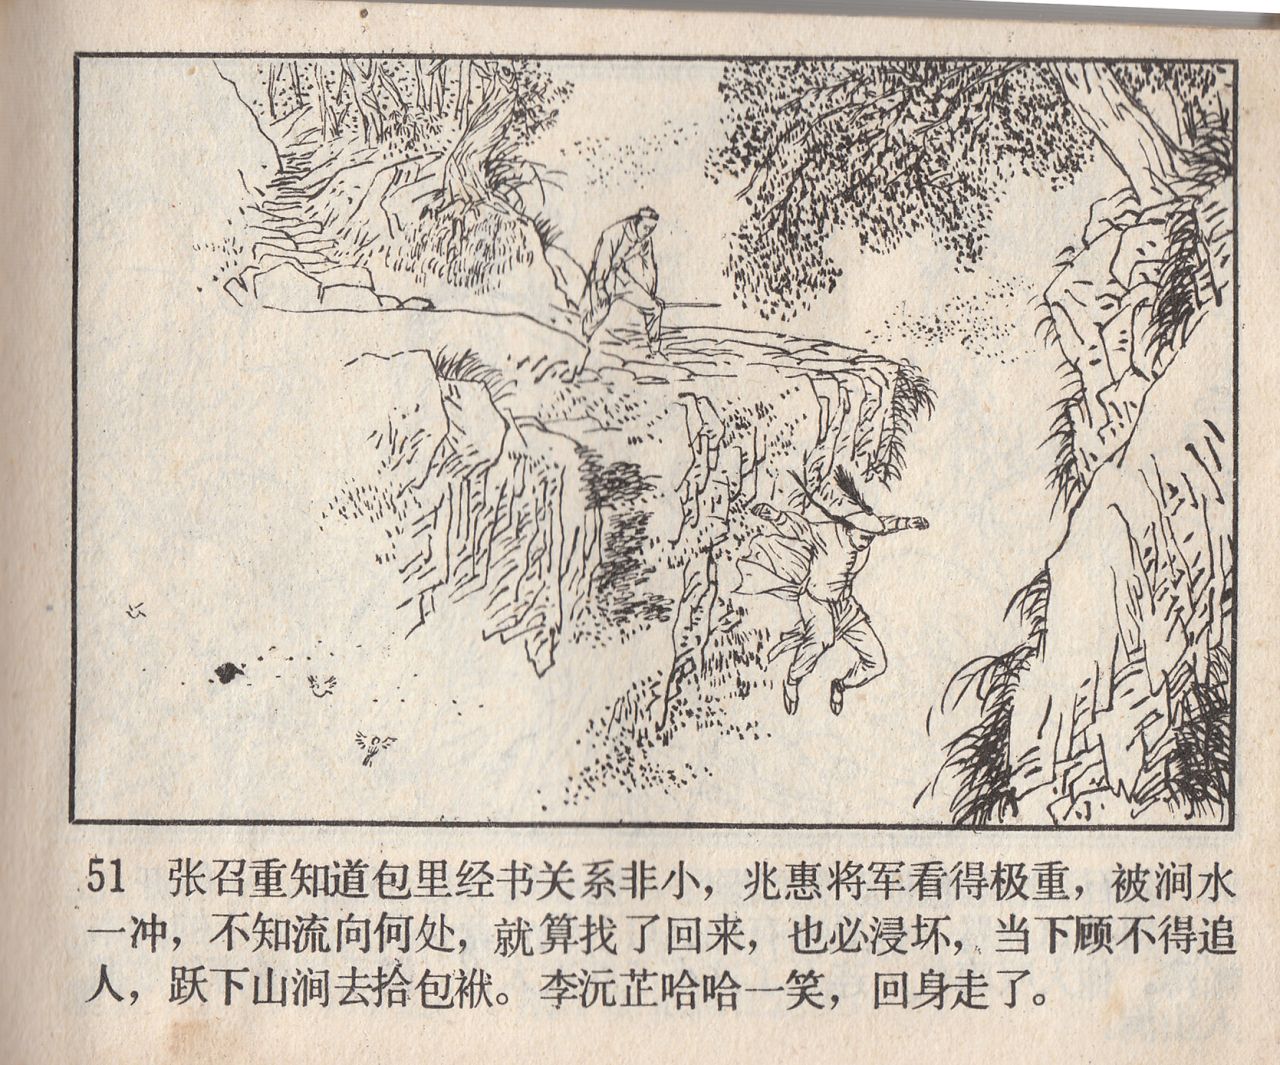 51 张召重知道包里经书关系非小，兆惠将军看得极重，被涧水
一冲，不知流向何处，就算找了回来，也必浸坏，当下顾不得追
人，跃下山涧去拾包袱。李沅芷哈哈一笑，回身走了。